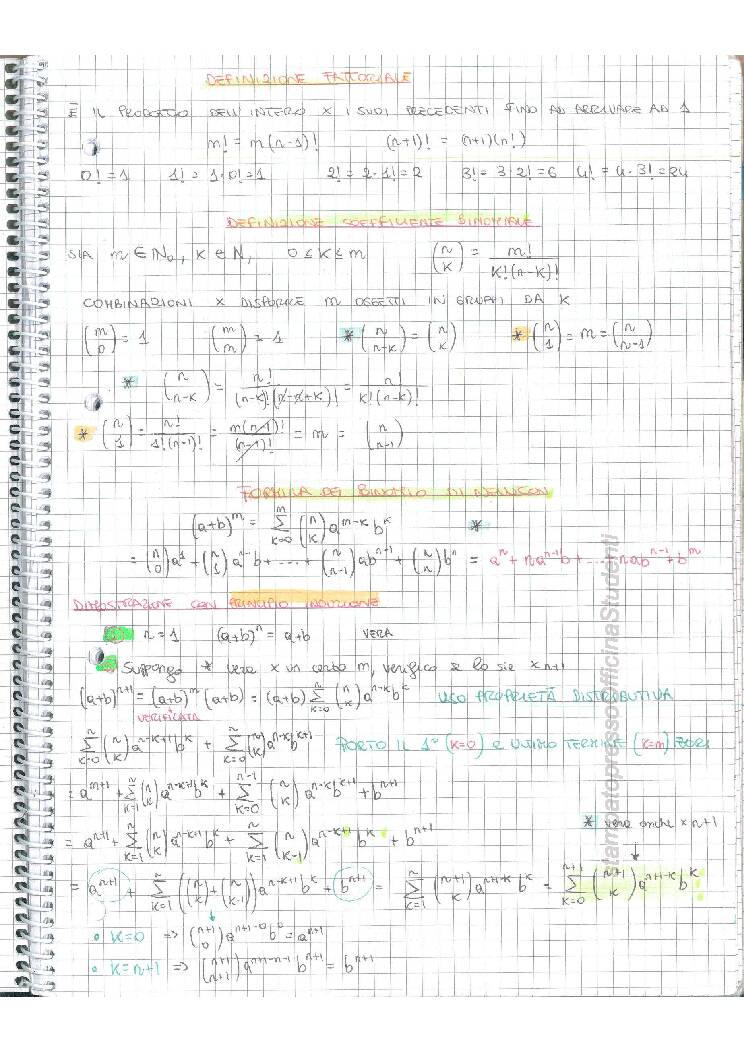 DEFINIZIONE FATTORIALE
È IL PRODOTTO DELL'INTERO X I SUOI PRECEDENTI FINO AD ARRIVARE AD 1
n! = n(n-1)! (n+1)! = (n+1)(n!)
0! = 1 1! = 1·0! = 1 2! = 2·1! = 2 3! = 3·2! = 6 4! = 4·3! = 24
DEFINIZIONE COEFFICIENTE BINOMIALE
SIA n ∈ N₀, K ∈ N, 0 ≤ K ≤ n (n K) = n! / K!(n-K)!
COMBINAZIONI X DISPORRE n OGGETTI IN GRUPPI DA K
(n 0) = 1 (n n) = 1 * (n n-K) = (n K) * (n 1) = n = (n n-1)
* (n n-K) = n! / (n-K)!(n-n+K)! = n! / K!(n-K)!
* (n 1) = n! / 1!(n-1)! = n(n-1)! / (n-1)! = n = (n n-1)
FORMULA DEL BINOMIO DI NEWTON
(a+b)ⁿ = Σ_{K=0}^{n} (n K) a^{n-K} b^K *
= (n 0)a¹ + (n 1)a^{n-}b + .... + (n n-1)ab^{n-1} + (n n)bⁿ = aⁿ + na^{n-1}b + .... nab^{n-1} + bⁿ
DIMOSTRAZIONE CON PRINCIPIO INDUZIONE
n = 1 (a+b)ⁿ = a+b VERA
Suppongo * vera x un certo n, verifico se lo sia x n+1
(a+b)^{n+1} = (a+b)ⁿ (a+b) = (a+b) Σ_{K=0}^{n} (n K) a^{n-K} b^K USO PROPRIETÀ DISTRIBUTIVA
VERIFICATA
Σ_{K=0}^{n} (n K) a^{n-K+1} b^K + Σ_{K=0}^{n} (n K) a^{n-K} b^{K+1} PORTO IL 1° (K=0) E ULTIMO TERMINE (K=n) FUORI
= a^{n+1} + Σ_{K=1}^{n} (n K) a^{n-K+1} b^K + Σ_{K=0}^{n-1} (n K) a^{n-K} b^{K+1} + b^{n+1}
* vera anche x n+1
= a^{n+1} + Σ_{K=1}^{n} (n K) a^{n-K+1} b^K + Σ_{K=1}^{n} (n K-1) a^{n-K+1} b^K + b^{n+1}
= a^{n+1} + Σ_{K=1}^{n} ((n K) + (n K-1)) a^{n-K+1} b^K + b^{n+1} = Σ_{K=1}^{n} (n+1 K) a^{n+1-K} b^K = Σ_{K=0}^{n+1} (n+1 K) a^{n+1-K} b^K
• K=0 => (n+1 0) a^{n+1-0} b⁰ = a^{n+1}
• K=n+1 => (n+1 n+1) a^{n+1-n-1} b^{n+1} = b^{n+1}
stampatopressoOfficinaStudenti